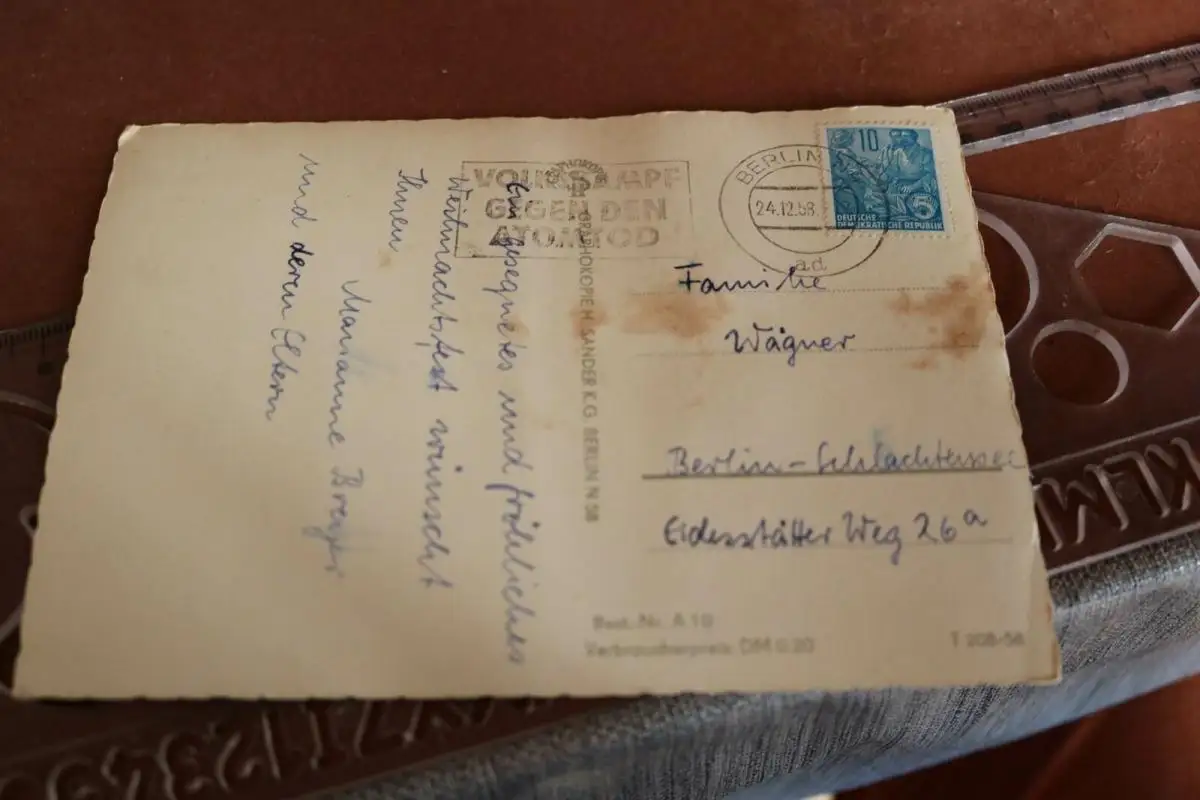 VOLKSKAMPF
GEGEN DEN
ATOMTOD
BERLIN
24.12.58
ad
10
5
DEUTSCHE
DEMOKRATISCHE REPUBLIK
Ein gesegnetes und fröhliches
Weihnachtsfest wünscht
Ihnen
Marianne
und deren Eltern
GRAPHOKOPIE H. SANDER K.G. BERLIN N 58
Familie
Wägner
Berlin-Schlachtensee
Eidesstätter Weg 26a
Best.-Nr. A 10
Verbraucherpreis: DM 0.20
T 208/58
KLM